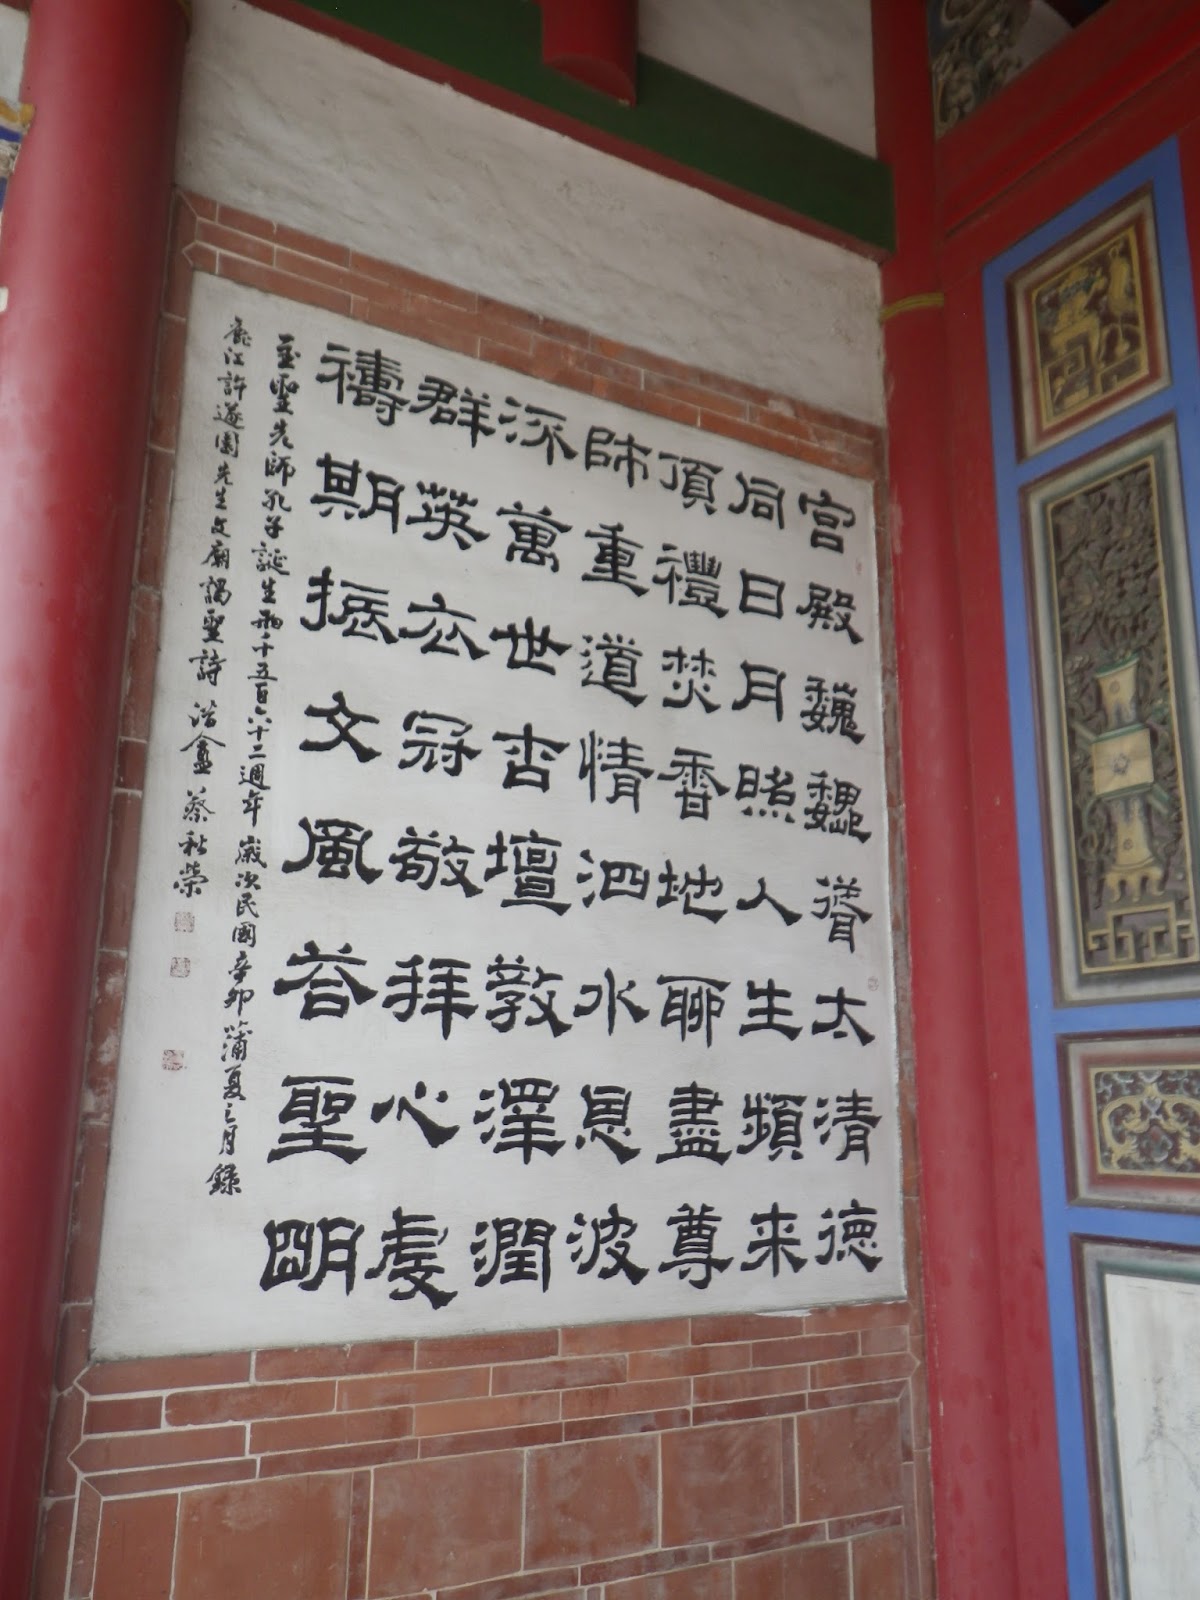 宮殿巍巍聳太清德
同日月照人生頻来
頂禮焚香地聊盡尊
師重道情泗水恩波
深萬世杏壇教澤潤
群英衣冠敬拜心虔
禱期振文風答聖明
至聖先師孔子誕生兩千五百六十二週年 歲次民國辛卯蒲夏之月錄
鹿江許遂園先生文廟謁聖詩 浩盦 蔡秋榮